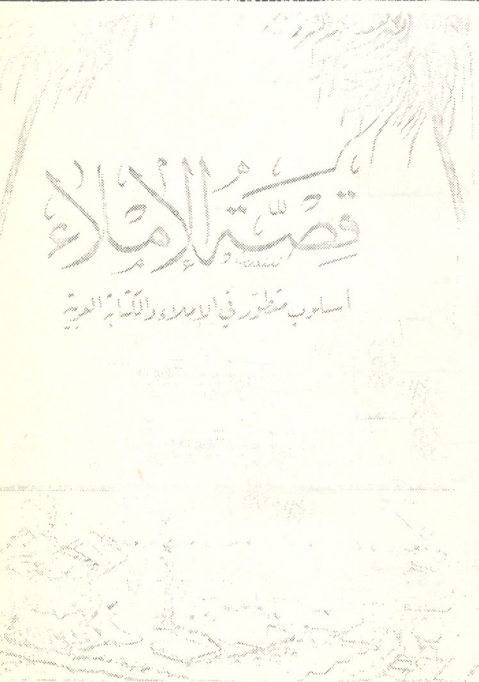 قِصَّةُ الإِملَاءِ
أسلوب متطوّر في الإملاء والكتابة العربية